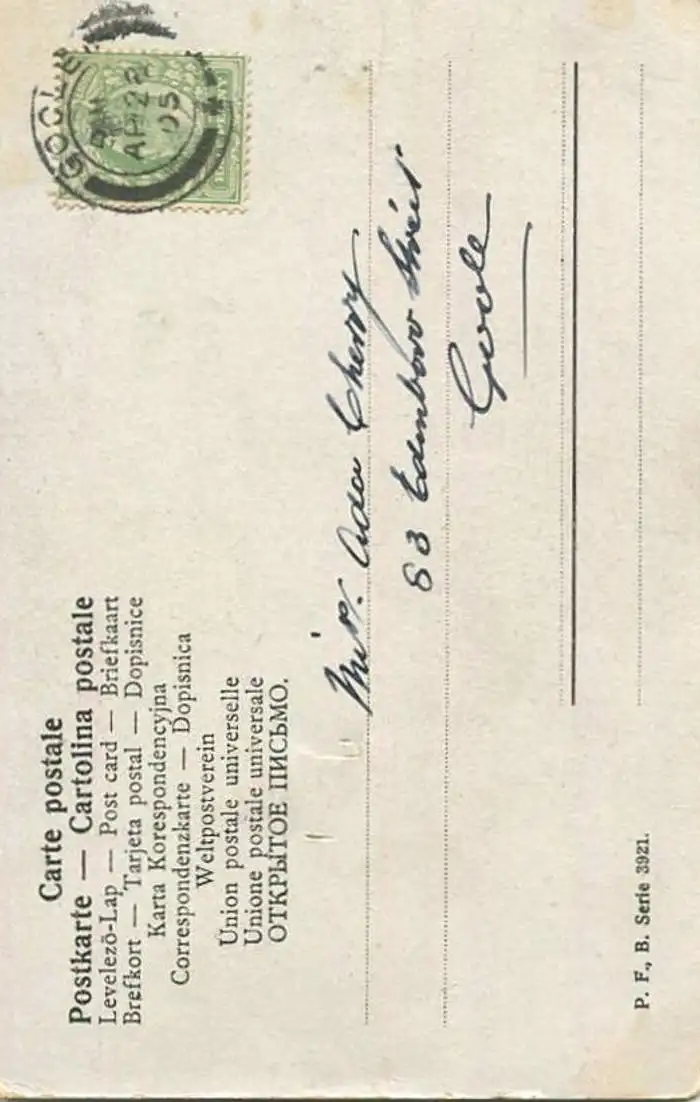 Carte postale
Postkarte — Cartolina postale
Levelezö-Lap — Post card — Briefkaart
Brefkort — Tarjeta postal — Dopisnice
Karta Korespondencyjna
Correspondenzkarte — Dopisnica
Weltpostverein
Union postale universelle
Unione postale universale
ОТКРЫТОЕ ПИСЬМО.
GOOLE
AP 22
05
Miss. Ada Cherry
83 Edinboro Street
Goole
P. F., B. Serie 3921.